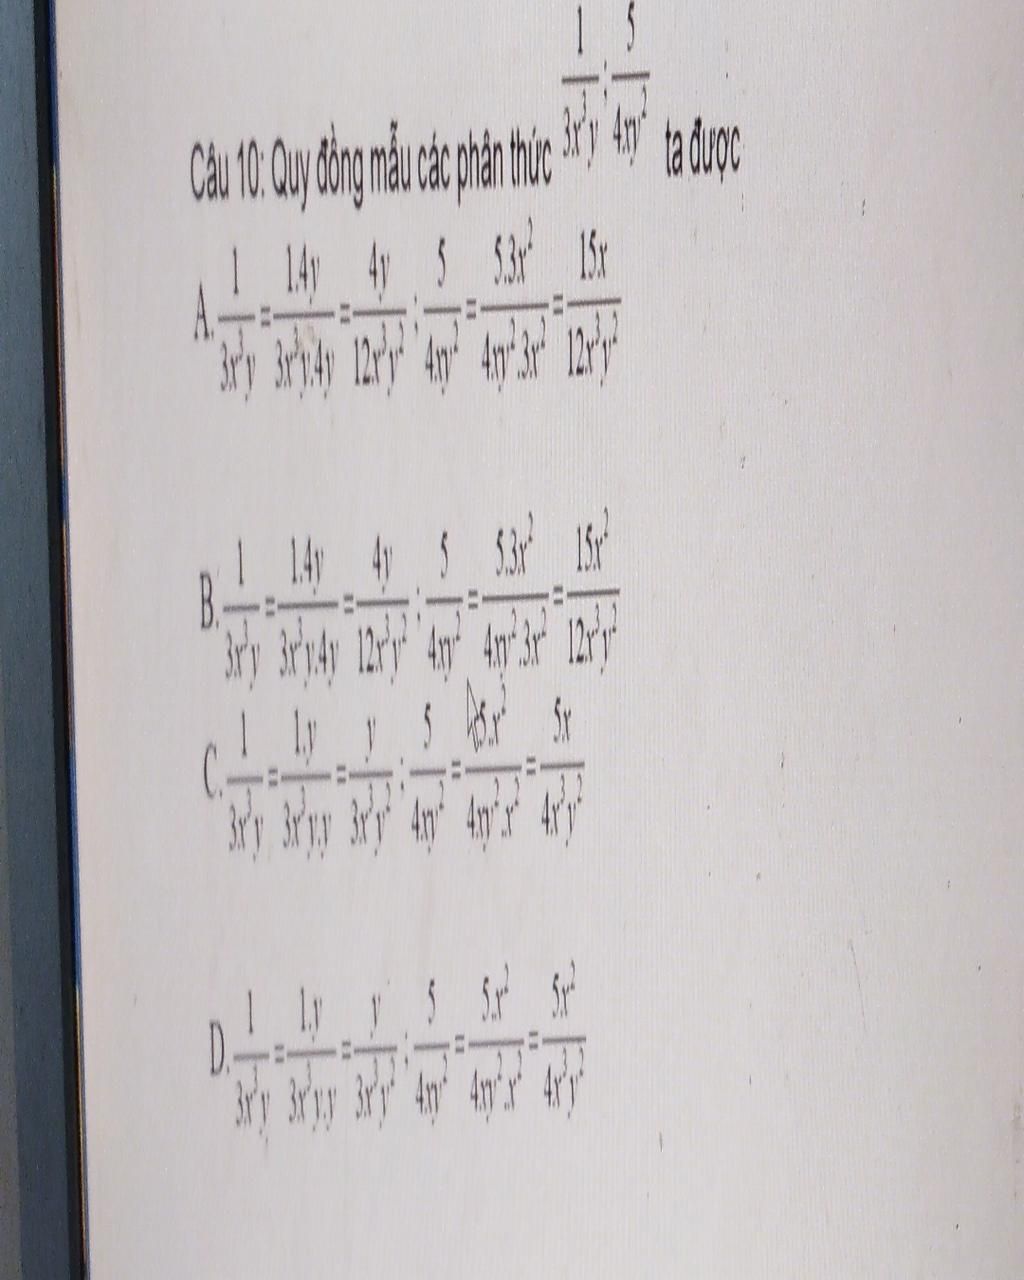 Câu 10: Quy đồng mẫu các phân thức 1/(3x³y) ; 5/(4xy²) ta được
A. 1/(3x³y) = 1.4y/(3x³y.4y) = 4y/(12x³y²) ; 5/(4xy²) = 5.3x²/(4xy².3x²) = 15x/(12x³y²)
B. 1/(3x³y) = 1.4y/(3x³y.4y) = 4y/(12x³y²) ; 5/(4xy²) = 5.3x²/(4xy².3x²) = 15x²/(12x³y²)
C. 1/(3x³y) = 1.y/(3x³y.y) = y/(3x³y²) ; 5/(4xy²) = 5.x²/(4xy².x²) = 5x/(4x³y²)
D. 1/(3x³y) = 1.y/(3x³y.y) = y/(3x³y²) ; 5/(4xy²) = 5.x²/(4xy².x²) = 5x²/(4x³y²)